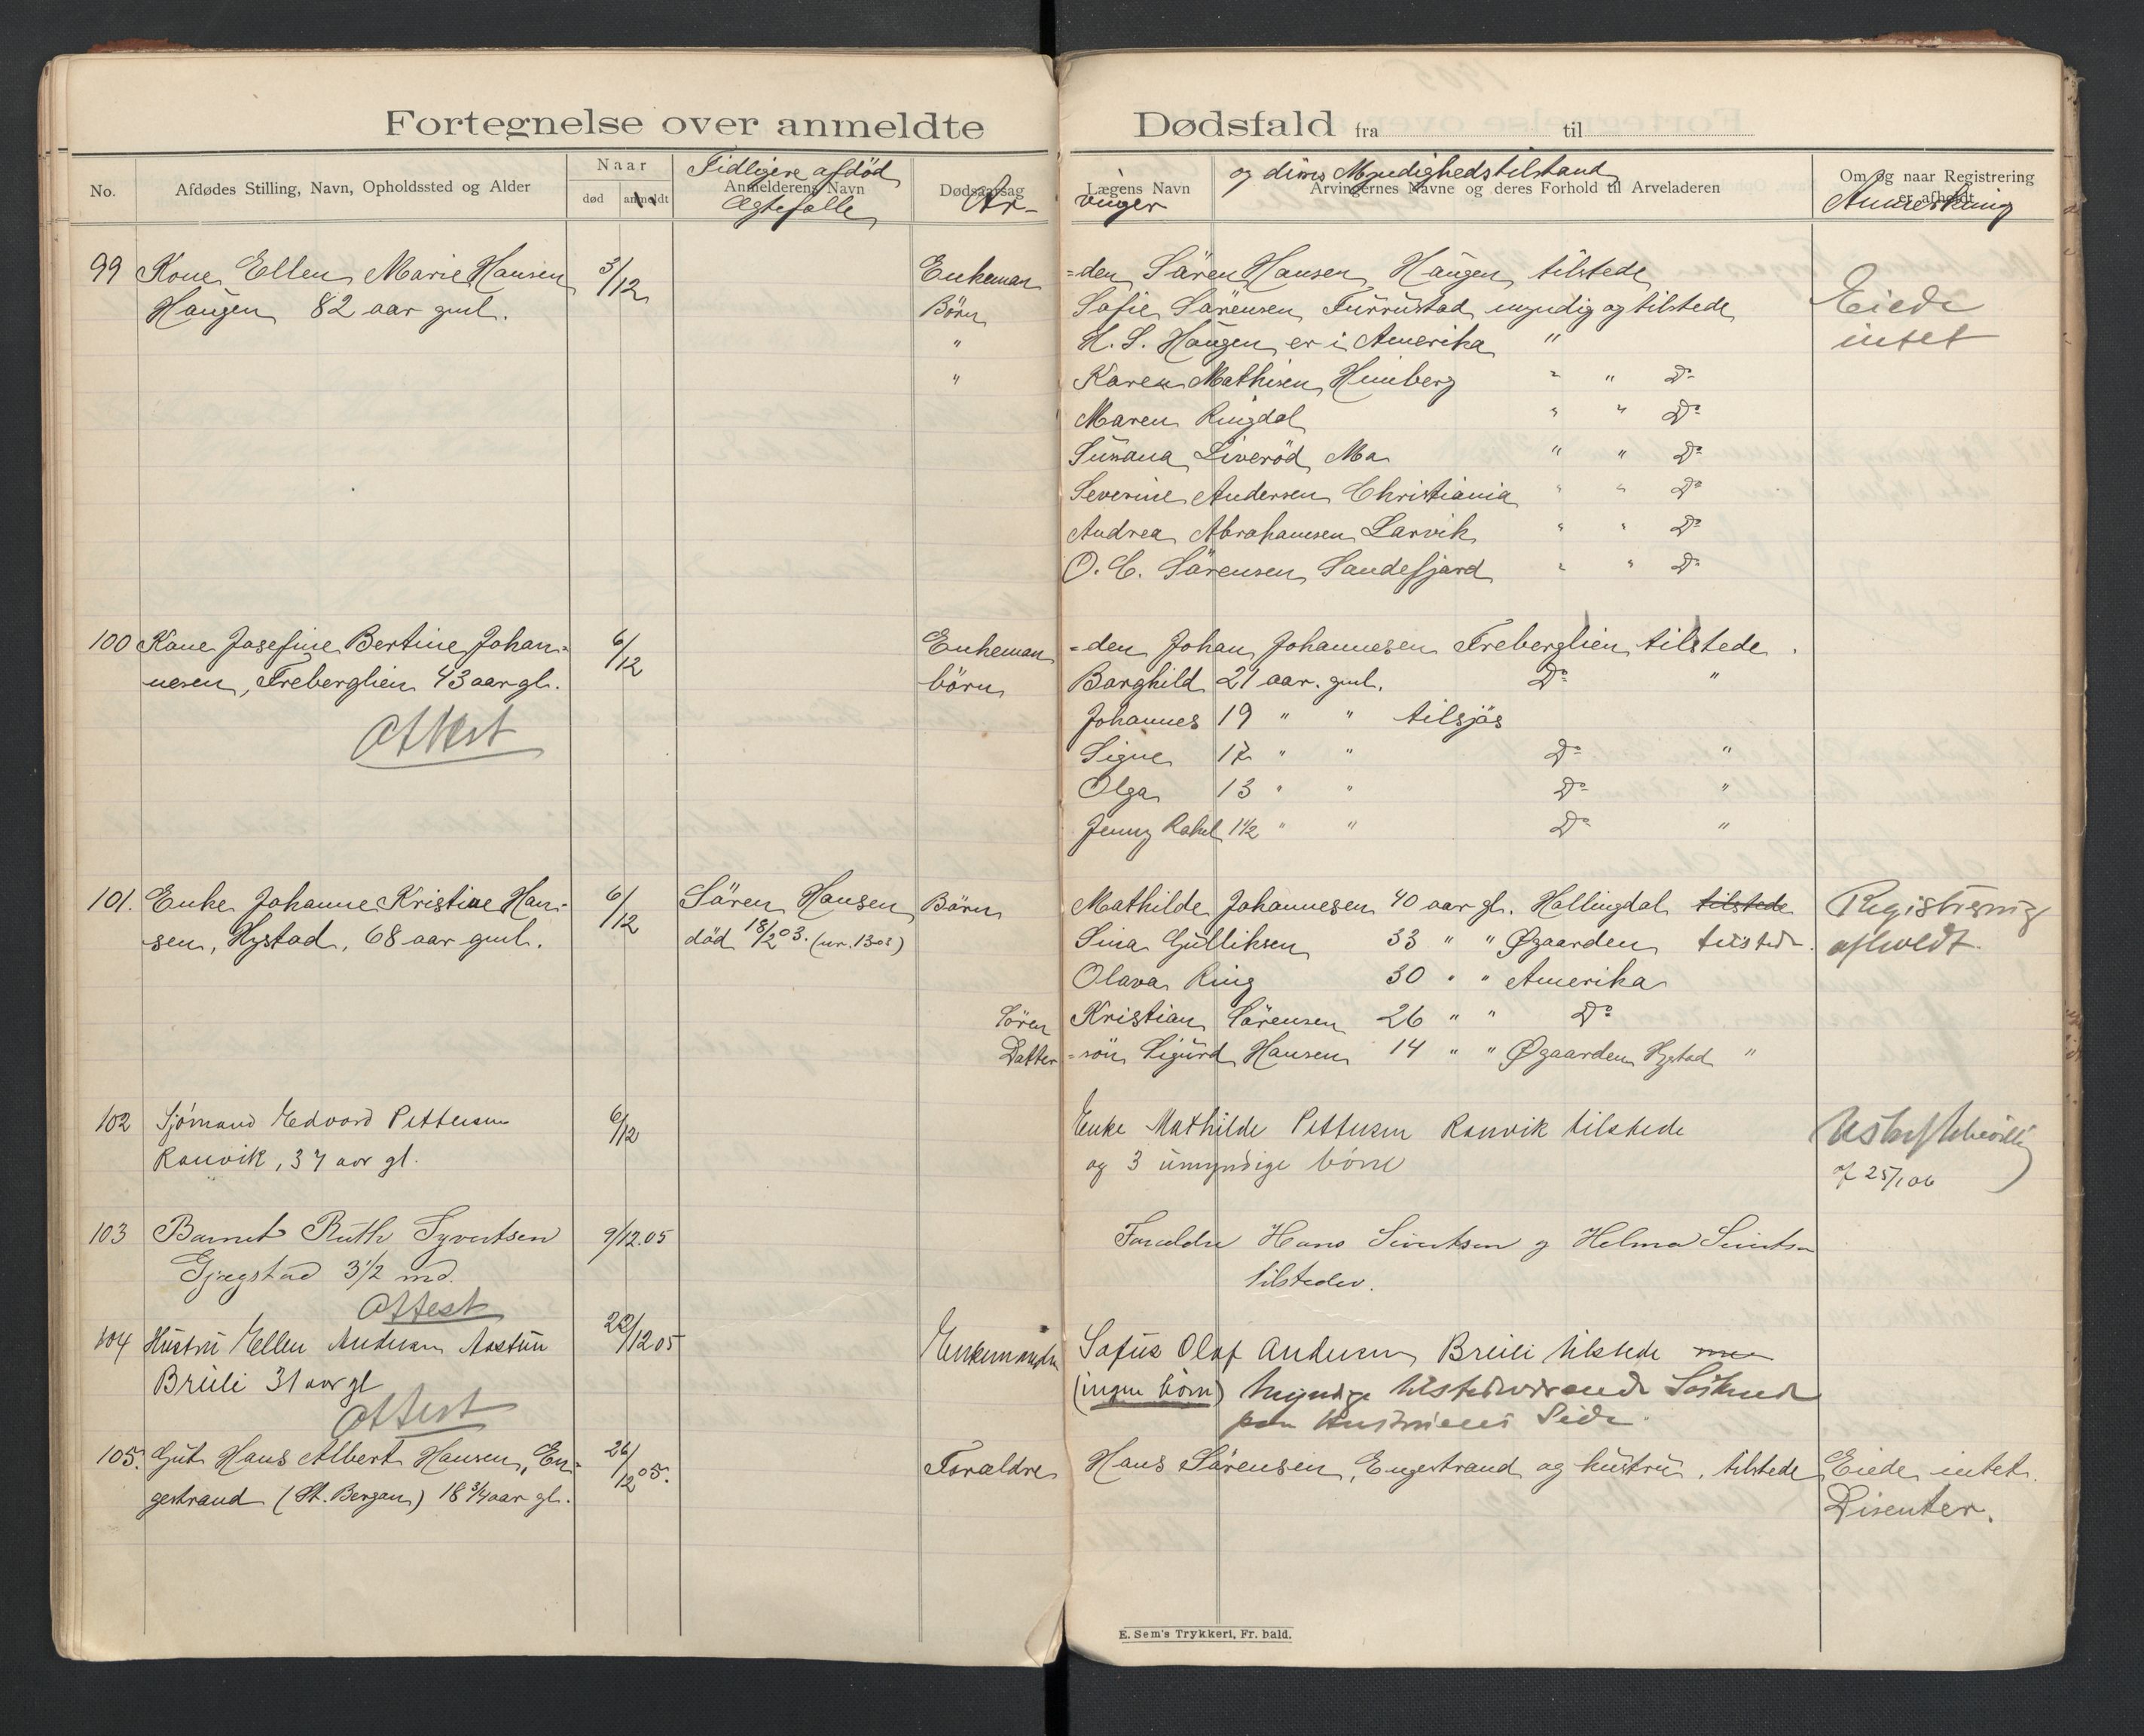 Fortegnelse over anmeldte Dødsfald fra til
No.
Afdødes Stilling, Navn, Opholdssted og Alder
Naar
død
anmeldt
Anmelderens Navn
Tidligere afdød
Ægtefælle
Dødsaarsag
Ar-
Lægens Navn
vinger
og deres Myndighedstilstand
Arvingernes Navne og deres Forhold til Arveladeren
Om og naar Registrering
er afholdt
Anmerkning
99 Kone Ellen Marie Hansen 3/12 Enkeman =den Sören Hansen Haugen tilstede
Haugen 82 aar gml. Börn Sofie Sörensen Furustad myndig og tilstede Eiede
" H. S. Haugen er i Amerika " intet
" Karen Mathisen Himberg " " Do
Maren Ringdal " " Do
Susana Liveröd Ma " " Do
Severine Andersen Christiania " " Do
Andrea Abrahamsen Larvik " " Do
O. C. Sörensen Sandefjord " " Do
100 Kone Josefine Bertine Johan- 6/12 Enkeman =den Johan Johannesen Freberglien tilstede.
nesen, Freberglien 43 aar gl. börn Borghild 21 aar. gml. Do "
Attest Johannes 19 " " tilsjös
Signe 17 " " Do "
Olga 13 " " Do "
Jenny Rakel 1 1/2 " " Do "
101. Enke Johanne Kristine Han- 6/12 Sören Hansen Börn Mathilde Johannesen 40 aar gl. Hallingdal tilstede Registrering
sen, Hystad, 68 aar gml. död 18/2 03. (nr. 1303) Sina Gulliksen 33 " " Øgaarden tilstede. afholdt.
Olava Ring 30 " " Amerika
Sören Kristian Sörensen 26 " " Do
Datter =sön Sigurd Hansen 14 " " Øgaarden Hystad "
102 Sjømand Edvard Pettersen 6/12 Enke Mathilde Pettersen Ranvik tilstede
Ranvik, 37 aar gl. og 3 umyndige børn
af 25/1 06
103 Barnet Ruth Syvertsen 9/12.05 Foraeldre Hans Sivertsen og Helma Sivertsen
Gjegstad 3 1/2 md. tilstede.
Attest
104 Hustru Ellen Andersen Aastun 22/12 05 Enkemanden Sofus Olaf Andersen Breili tilstede
Breili 31 aar gl (ingen børn) Myndige tilstedeværende Söskende
Attest paa Hustruens Side.
105. Gut Hans Albert Hansen, En- 26/12 05. Forældre Hans Sörensen, Engestrand og hustru, tilstede Eiede intet.
gestrand (St. Bergan) 18 3/4 aar gl. Disenter.
E. Sem's Trykkeri, Fr. hald.